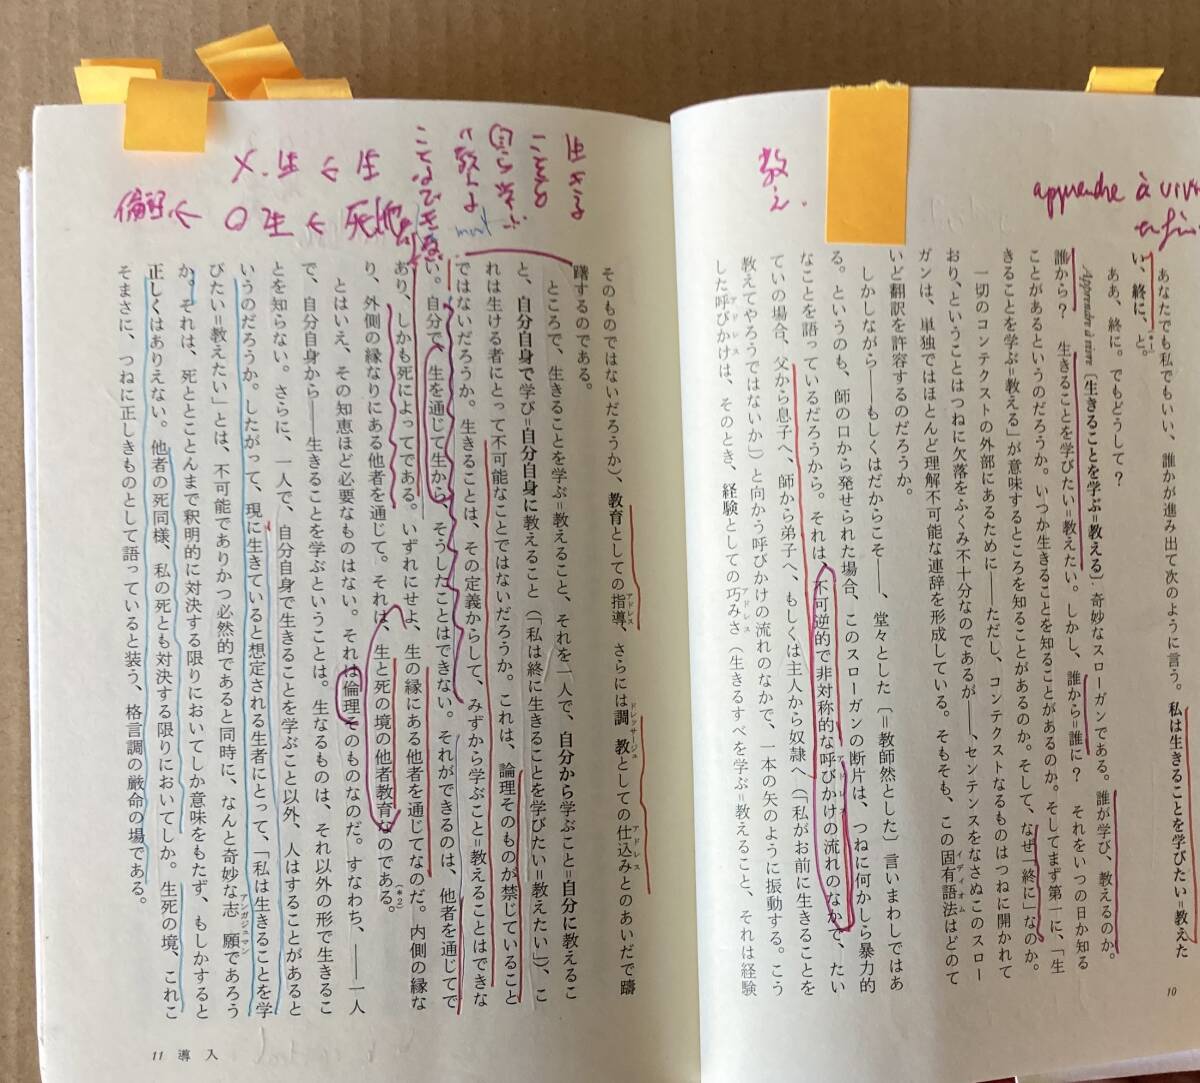 apprendre à viv
enfin
教え.
あなたでも私でもいい、誰かが進み出て次のように言う。私は生きることを学びたい=教えた
い、終に、と。
ああ、終に。でもどうして?
Apprendre à vivre〔生きることを学ぶ=教える〕。奇妙なスローガンである。誰が学び、教えるのか。
誰から? 生きることを学びたい=教えたい。しかし、誰から=誰に? それをいつの日か知る
ことがあるというのだろうか。いつか生きることを知ることがあるのか。そしてまず第一に、「生
きることを学ぶ=教える」が意味するところを知ることがあるのか。そして、なぜ「終に」なのか。
一切のコンテクストの外部にあるために――ただし、コンテクストなるものはつねに開かれて
おり、ということはつねに欠落をふくみ不十分なのであるが――、センテンスをなさぬこのスロー
ガンは、単独ではほとんど理解不可能な連辞を形成している。そもそも、この固有語法はどのて
イディオム
いど翻訳を許容するのだろうか。
しかしながら――もしくはだからこそ――、堂々とした〔=教師然とした〕言いまわしではあ
る。というのも、師の口から発せられた場合、このスローガンの断片は、つねに何かしら暴力的
なことを語っているだろうから。それは、不可逆的で非対称的な呼びかけの流れのなかで、たい
アドレス
ていの場合、父から息子へ、師から弟子へ、もしくは主人から奴隷へ(「私がお前に生きることを
教えてやろうではないか」)と向かう呼びかけの流れのなかで、一本の矢のように振動する。こう
した呼びかけは、そのとき、経験としての巧みさ(生きるすべを学ぶ=教えること、それは経験
アドレス
アドレス
10
生きる
ことを
自ら学ぶ
教よ
生く生.×
死
〇生く
倫理く
そのものではないだろうか)、教育としての指導、さらには調教としての仕込みとのあいだで躊
アドレス
ドレッサージュ
アドレス
躇するのである。
ところで、生きることを学ぶ=教えること、それを一人で、自分から学ぶこと=自分に教えるこ
と、自分自身で学び=自分自身に教えること(「私は終に生きることを学びたい=教えたい」)、こ
れは生ける者にとって不可能なことではないだろうか。これは、論理そのものが禁じていること
ではないだろうか。生きることは、その定義からして、みずから学ぶこと=教えることはできな
い。自分で、生を通じて生から、そうしたことはできない。それができるのは、他者を通じてで
あり、しかも死によってである。いずれにせよ、生の縁にある他者を通じてなのだ。内側の縁な
り、外側の縁なりにある他者を通じて。それは、生と死の境の他者教育なのである。
(*2)
とはいえ、その知恵ほど必要なものはない。それは倫理そのものなのだ。すなわち、――一人
で、自分自身から――生きることを学ぶということは。生なるものは、それ以外の形で生きるこ
とを知らない。さらに、一人で、自分自身で生きることを学ぶこと以外、人はすることがあると
いうのだろうか。したがって、現に生きていると想定される生者にとって、「私は生きることを学
びたい=教えたい」とは、不可能でありかつ必然的であると同時に、なんと奇妙な志願であろう
アンガジュマン
か。それは、死ととことんまで釈明的に対決する限りにおいてしか意味をもたず、もしかすると
正しくはありえない。他者の死同様、私の死とも対決する限りにおいてしか。生死の境、これこ
そまさに、つねに正しきものとして語っていると装う、格言調の厳命の場である。
11 導入